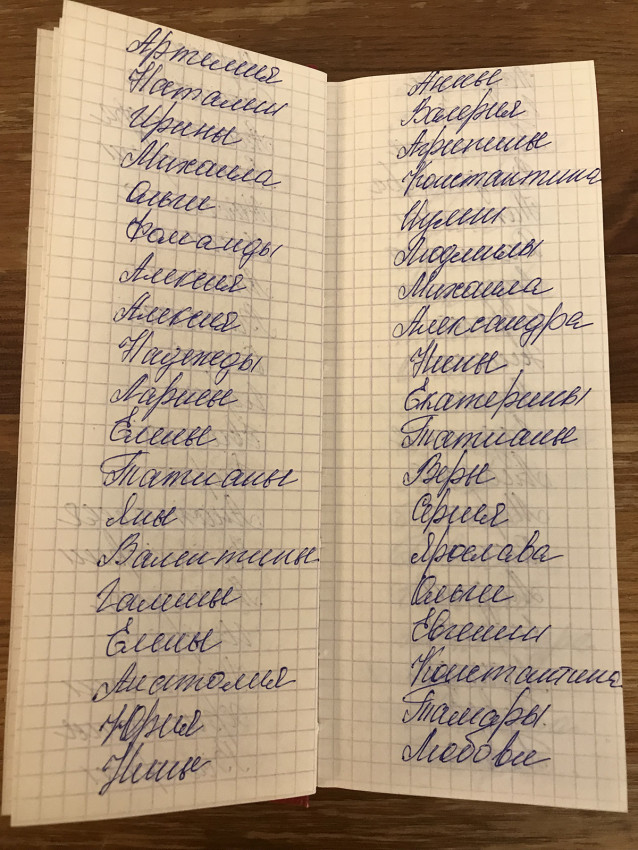 Артемия
Наталии
Ирины
Михаила
Ольги
Фотинии
Алексия
Алексия
Надежды
Ларисы
Елены
Татианы
Яны
Валентины
Галины
Елены
Анатолия
Юрия
Нины
Анны
Валерия
Агрипины
Константина
Иулии
Людмилы
Михаила
Александра
Нины
Екатерины
Татианы
Веры
Сергия
Ярослава
Ольги
Евгении
Константина
Тамары.
Любови